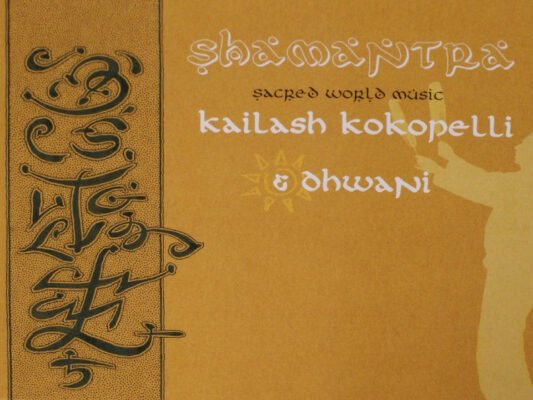 shamantra
sacred world music
kailash kokopelli
& dhwani